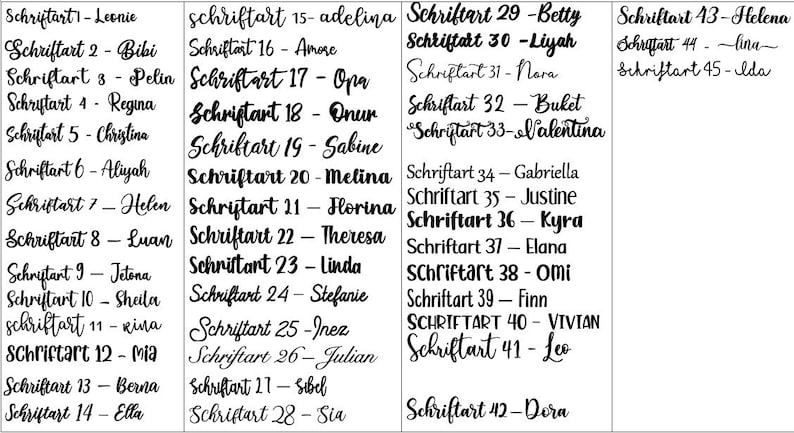 Schriftart 1 - Leonie
Schriftart 2 - Bibi
Schriftart 3 - Pelin
Schriftart 4 - Regina
Schriftart 5 - Christina
Schriftart 6 - Aliyah
Schriftart 7 - Helen
Schriftart 8 - Luan
Schriftart 9 - Jetona
Schriftart 10 - Sheila
schriftart 11 - Rina
SCHRIFTART 12 - Mia
Schriftart 13 - Berna
Schriftart 14 - Ella
schriftart 15- adelina
Schriftart 16 - Amore
Schriftart 17 - Opa
Schriftart 18 - Onur
Schriftart 19 - Sabine
Schriftart 20 - Melina
Schriftart 21 - Florina
Schriftart 22 - Theresa
Schriftart 23 - Linda
Schriftart 24 - Stefanie
Schriftart 25 -Inez
Schriftart 26 - Julian
Schriftart 27 - Sibel
Schriftart 28 - Sia
Schriftart 29 -Betty
Schriftart 30 -Liyah
Schriftart 31 - Nora
Schriftart 32 - Buket
Schriftart 33-Valentina
Schriftart 34 - Gabriella
Schriftart 35 - Justine
Schriftart 36 - Kyra
Schriftart 37 - Elana
SCHRIFTART 38 - OMI
Schriftart 39 - Finn
SCHRIFTART 40 - VIVIAN
Schriftart 41 - Leo
Schriftart 42-Dora
Schriftart 43-Helena
Schriftart 44 - lina
Schriftart 45-Ida